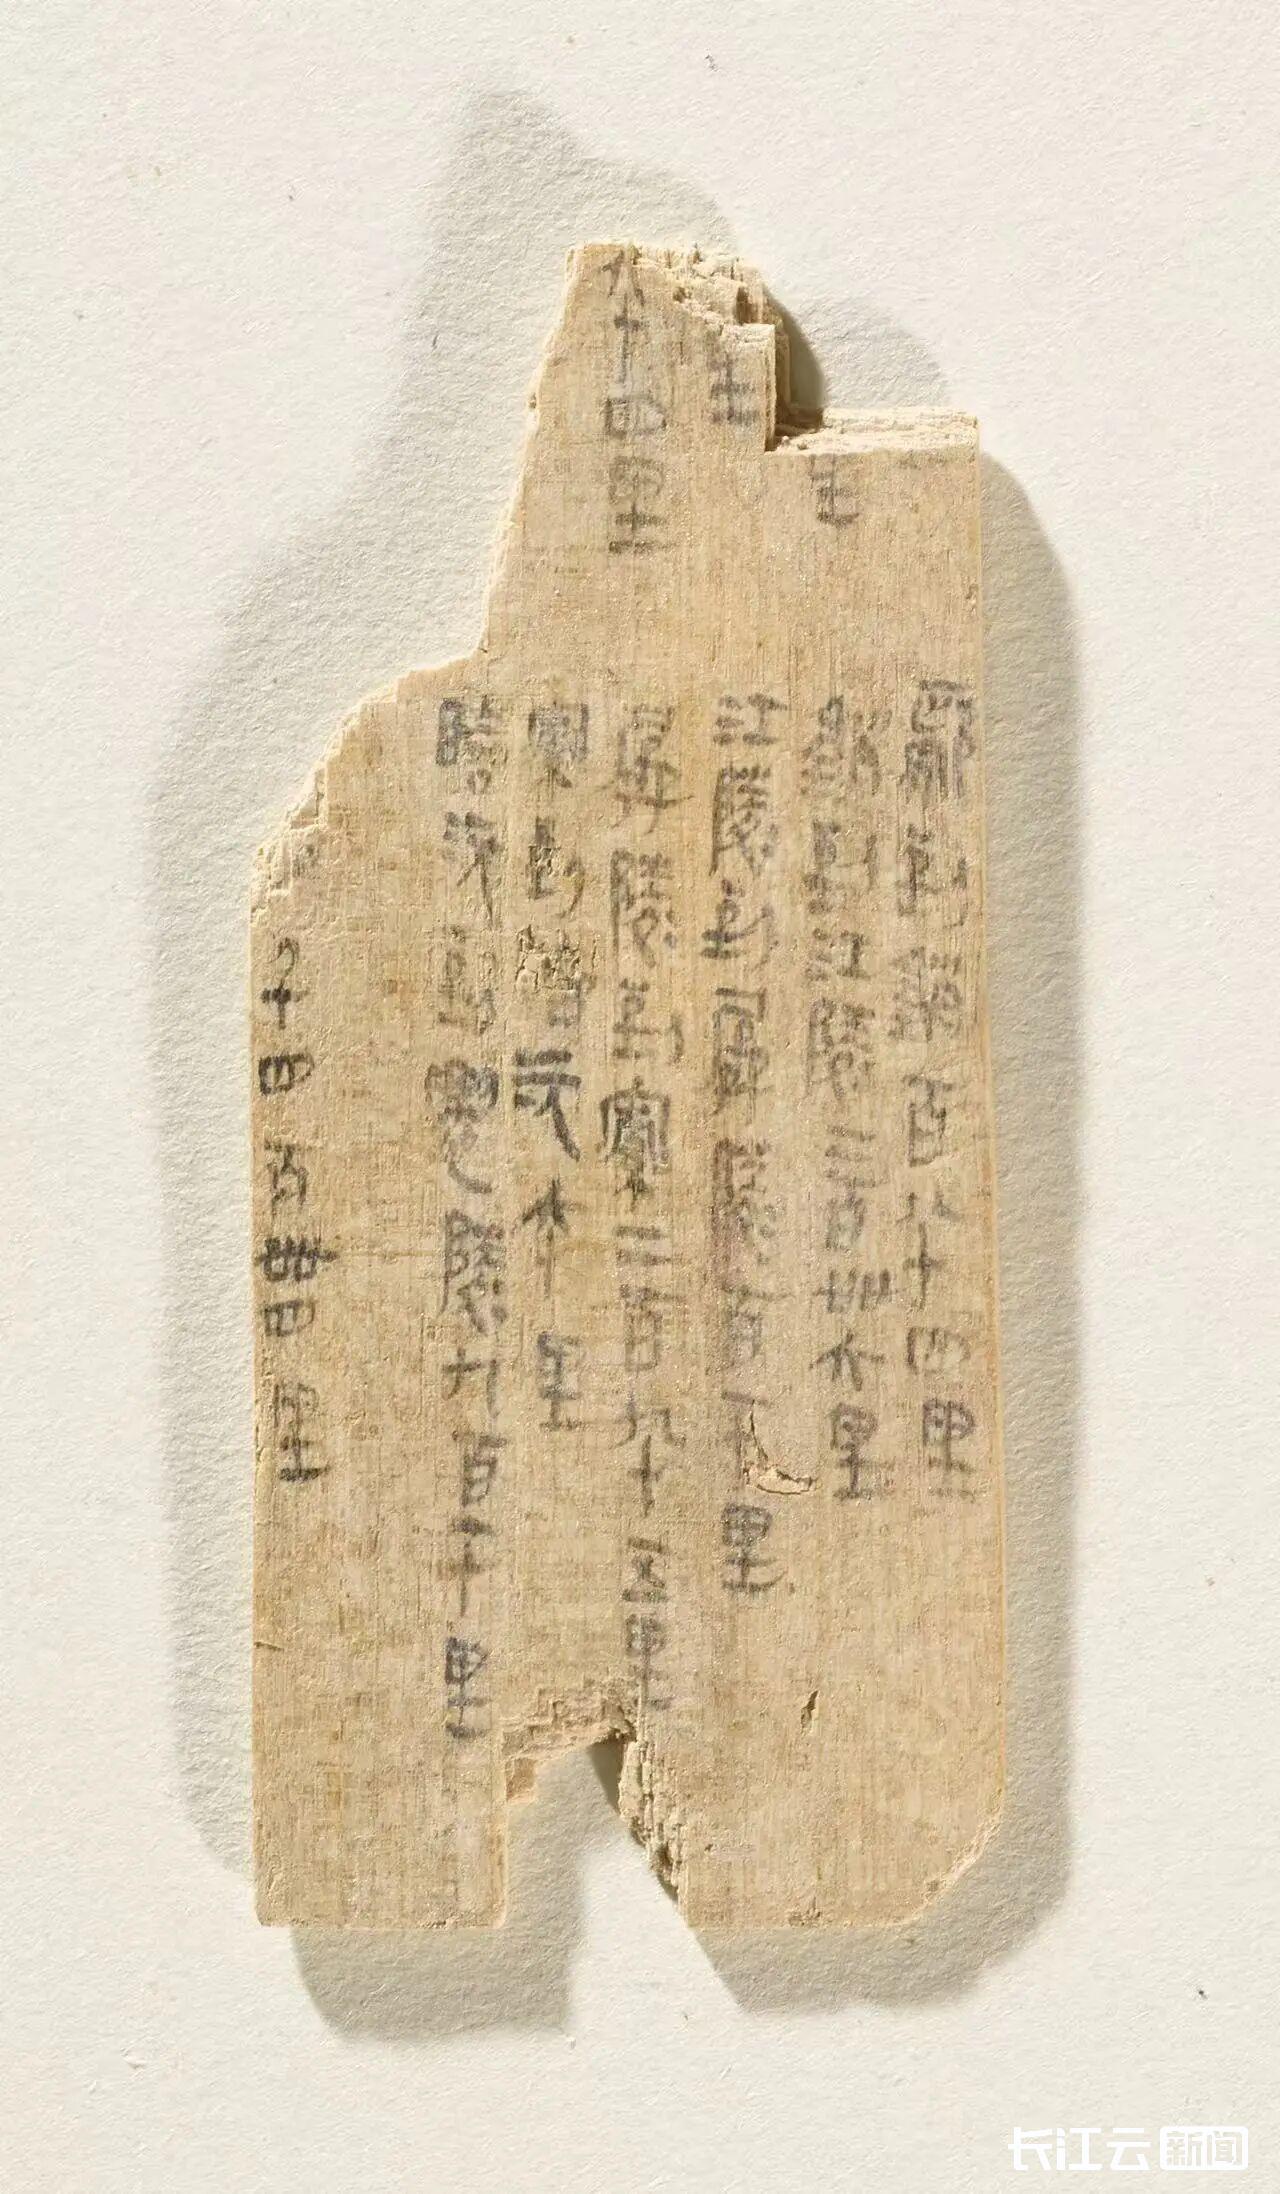 里
里
十四里
鄢到銷百八十四里
銷到江陵二百卌六里
江陵到孱陵百一十里
孱陵到索二百九十五里
索到臨沅六十里
臨沅到遷陵九百一十里
千四百卌四里
长江云新闻